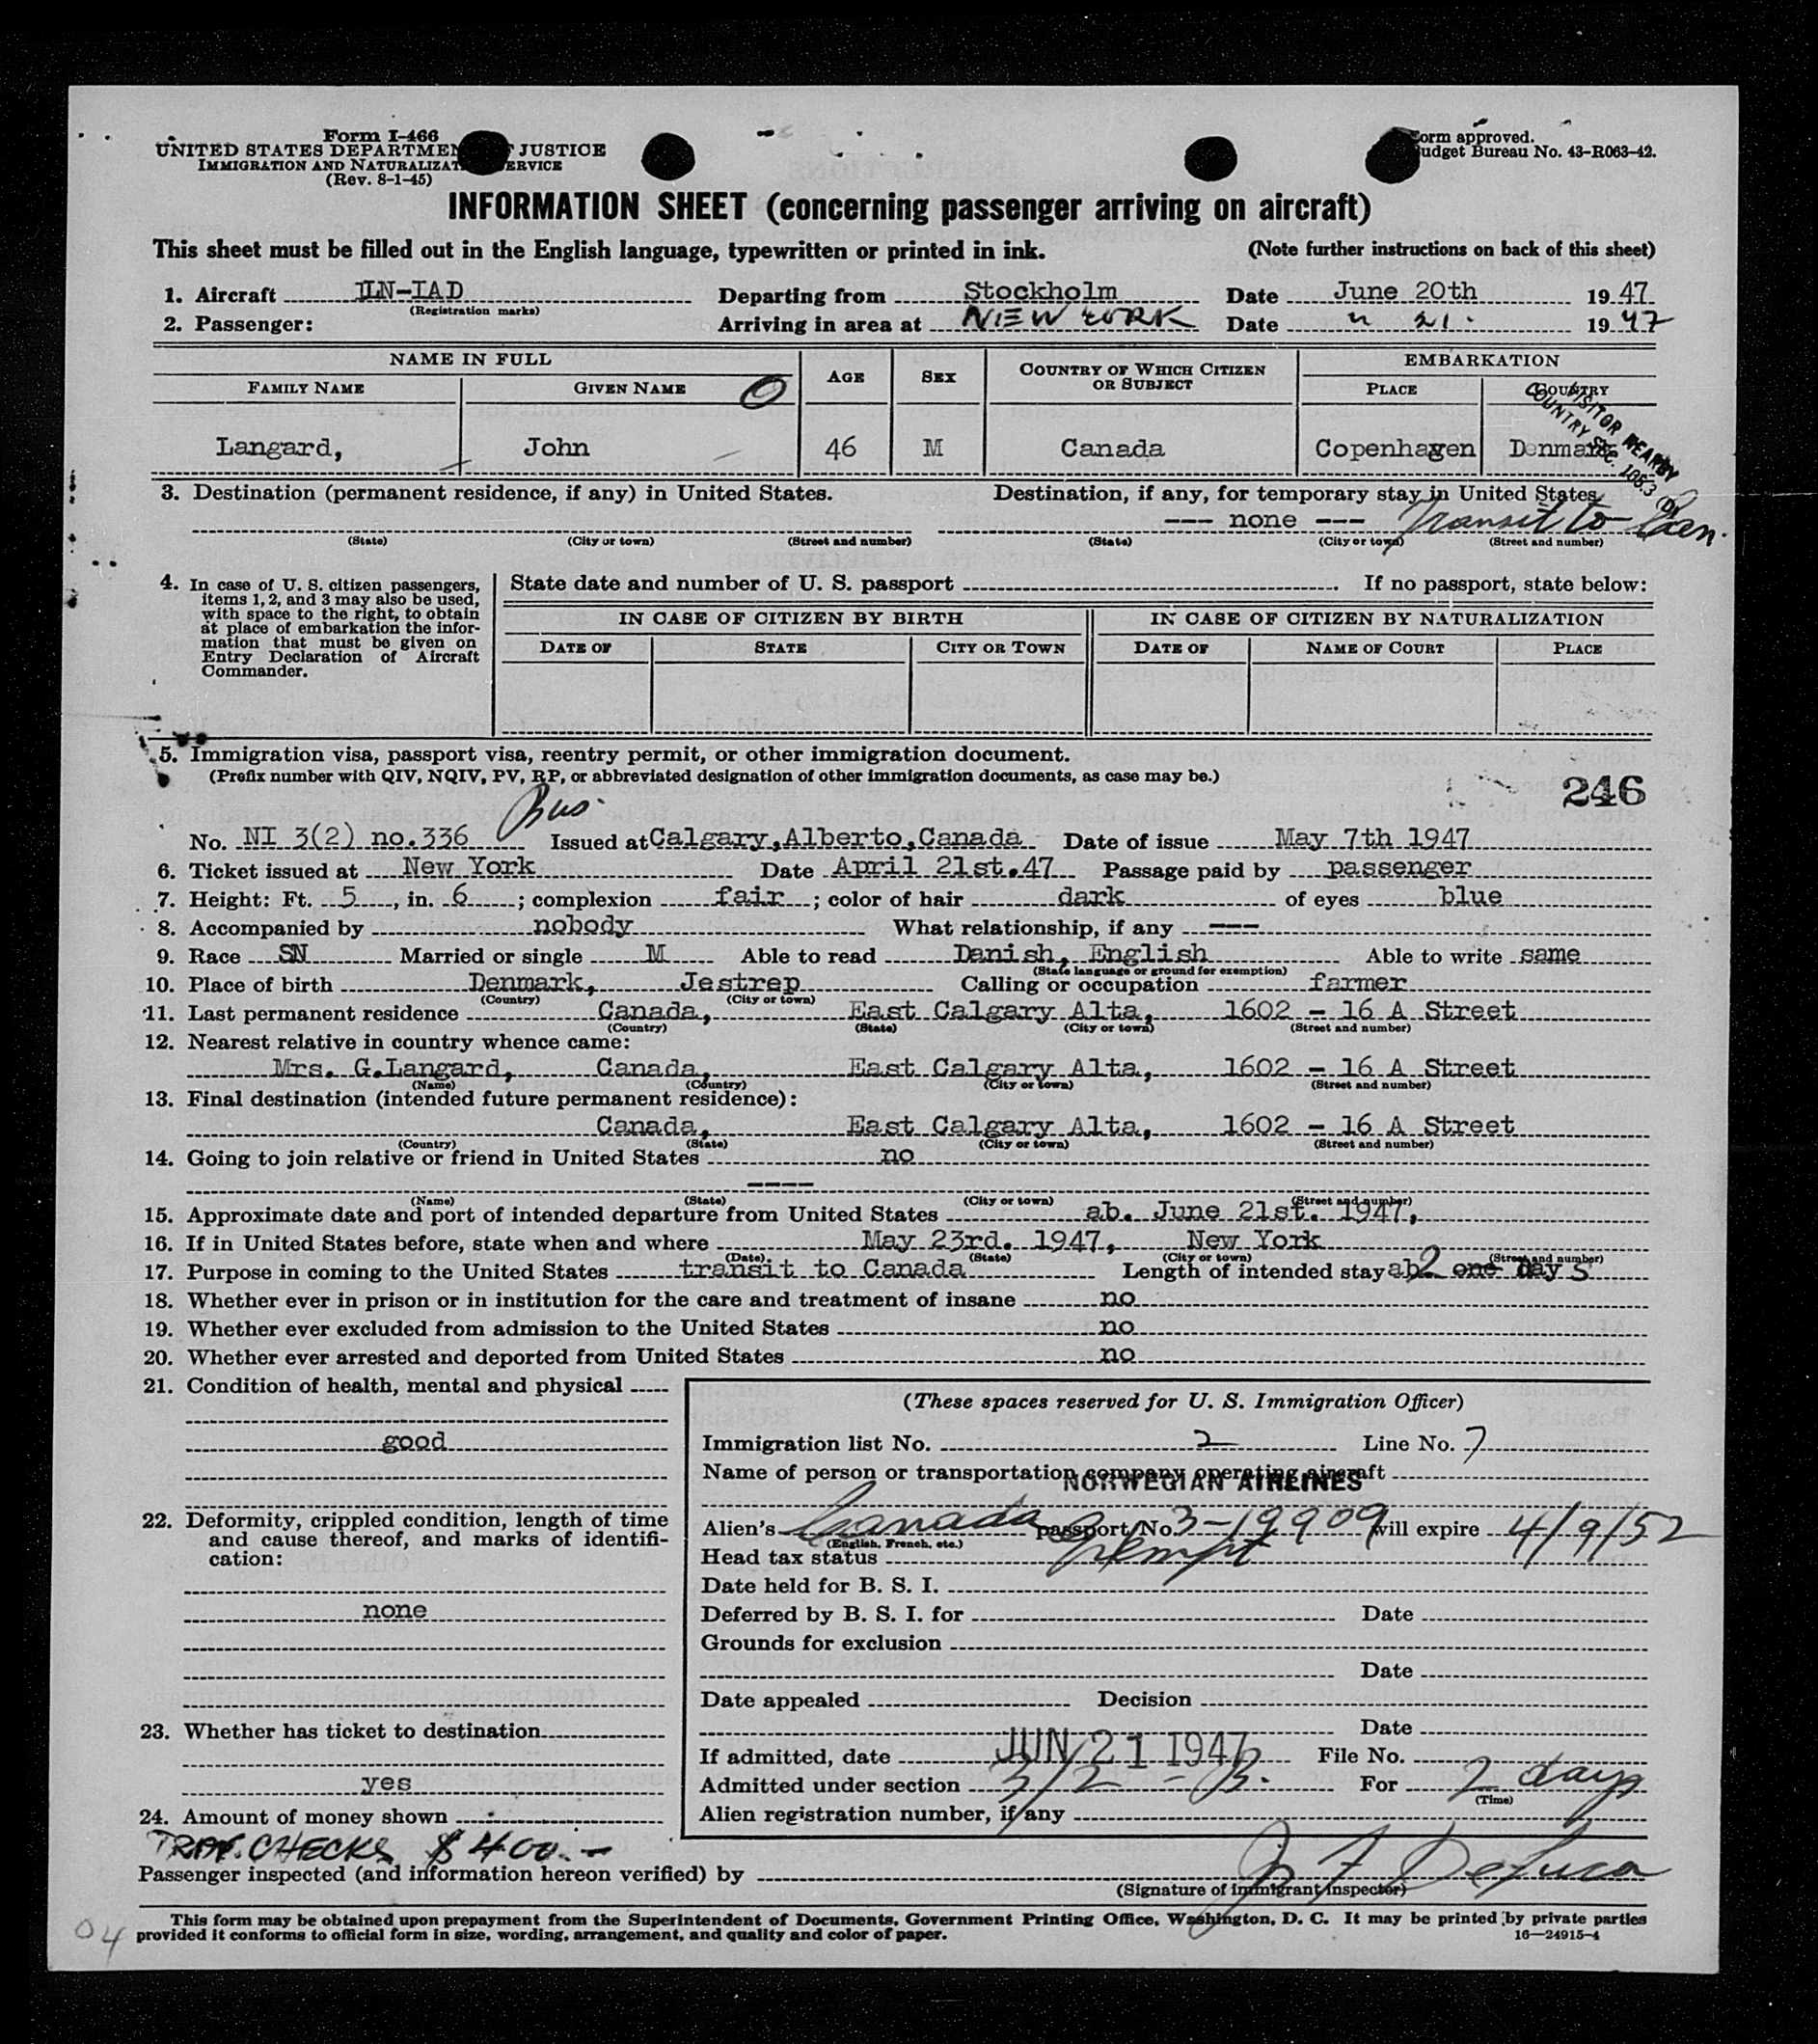 Form I-466
UNITED STATES DEPARTMENT JUSTICE
IMMIGRATION AND NATURALIZAT ERVICE
(Rev. 8-1-45)
orm approved.
udget Bureau No. 43-R063-42.
INFORMATION SHEET (concerning passenger arriving on aircraft)
This sheet must be filled out in the English language, typewritten or printed in ink. (Note further instructions on back of this sheet)
1. Aircraft LN-IAD Departing from Stockholm Date June 20th 1947
(Registration marks)
2. Passenger: Arriving in area at NEW YORK Date " 21. 1947
NAME IN FULL AGE SEX COUNTRY OF WHICH CITIZEN OR SUBJECT EMBARKATION
FAMILY NAME GIVEN NAME PLACE COUNTRY
VISITOR NEARBY
COUNTRY SEC. 106.3
Langard, John 46 M Canada Copenhagen Denmark
3. Destination (permanent residence, if any) in United States. Destination, if any, for temporary stay in United States
--- none --- Transit to Can.
(State) (City or town) (Street and number) (State) (City or town) (Street and number)
4. In case of U. S. citizen passengers, items 1, 2, and 3 may also be used, with space to the right, to obtain at place of embarkation the information that must be given on Entry Declaration of Aircraft Commander.
State date and number of U. S. passport . If no passport, state below:
IN CASE OF CITIZEN BY BIRTH IN CASE OF CITIZEN BY NATURALIZATION
DATE OF STATE CITY OR TOWN DATE OF NAME OF COURT PLACE
5. Immigration visa, passport visa, reentry permit, or other immigration document.
(Prefix number with QIV, NQIV, PV, RP, or abbreviated designation of other immigration documents, as case may be.)
246
Bus.
No. NI 3(2) no.336 Issued at Calgary,Alberto,Canada Date of issue May 7th 1947
6. Ticket issued at New York Date April 21st.47 Passage paid by passenger
7. Height: Ft. 5, in. 6; complexion fair; color of hair dark of eyes blue
8. Accompanied by nobody What relationship, if any ---
9. Race SN Married or single M Able to read Danish, English Able to write same
(State language or ground for exemption)
10. Place of birth Denmark, Jestrep Calling or occupation farmer
(Country) (City or town)
11. Last permanent residence Canada, East Calgary Alta, 1602 - 16 A Street
(Country) (State) (City or town) (Street and number)
12. Nearest relative in country whence came:
Mrs. G.Langard, Canada, East Calgary Alta, 1602 - 16 A Street
(Name) (Country) (City or town) (Street and number)
13. Final destination (intended future permanent residence):
Canada, East Calgary Alta, 1602 - 16 A Street
(Country) (State) (City or town) (Street and number)
14. Going to join relative or friend in United States no
----
(Name) (State) (City or town) (Street and number)
15. Approximate date and port of intended departure from United States ab. June 21st. 1947,
16. If in United States before, state when and where May 23rd. 1947, New York
(Date) (State) (City or town) (Street and number)
17. Purpose in coming to the United States transit to Canada Length of intended stay ab. 2 one days
18. Whether ever in prison or in institution for the care and treatment of insane no
19. Whether ever excluded from admission to the United States no
20. Whether ever arrested and deported from United States no
21. Condition of health, mental and physical
good
22. Deformity, crippled condition, length of time and cause thereof, and marks of identification:
none
23. Whether has ticket to destination
yes
24. Amount of money shown
TRAV. CHECKS $400.-
(These spaces reserved for U. S. Immigration Officer)
Immigration list No. 2 Line No. 7
Name of person or transportation company operating aircraft
NORWEGIAN AIRLINES
Alien's Canada passport No. 3-19909 will expire 4/9/52
(English, French, etc.)
Head tax status Exempt
Date held for B. S. I.
Deferred by B. S. I. for Date
Grounds for exclusion
Date
Date appealed Decision
Date
If admitted, date JUN 21 1947 File No.
Admitted under section 3/2 - B. For 2 days
(Time)
Alien registration number, if any
Passenger inspected (and information hereon verified) by J F DeLuca
(Signature of immigrant inspector)
This form may be obtained upon prepayment from the Superintendent of Documents, Government Printing Office, Washington, D. C. It may be printed by private parties
provided it conforms to official form in size, wording, arrangement, and quality and color of paper. 16—24915-4
04